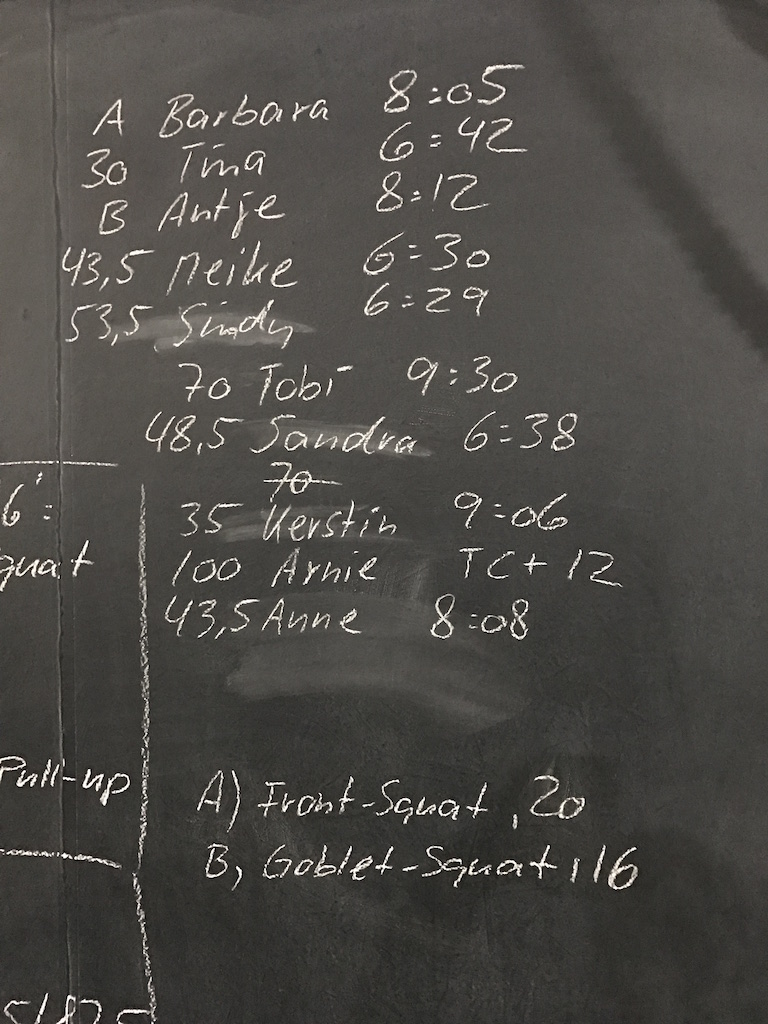 A Barbara 8:05
30 Tina 6:42
B Antje 8:12
43,5 Meike 6:30
53,5 Sindy 6:29
70 Tobi 9:30
48,5 Sandra 6:38
70
35 Kerstin 9:06
100 Arnie TC+ 12
43,5 Anne 8:08
6':
quat
Pull-up
A) Front-Squat, 20
B) Goblet-Squat, 16